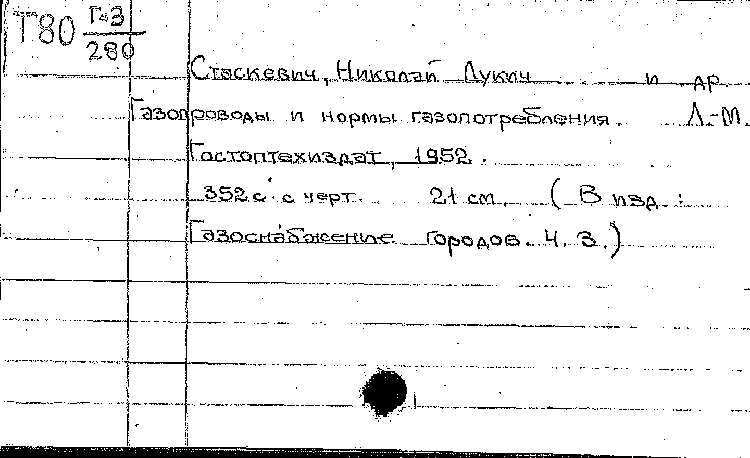 Т80 Г-3
280
Стаскевич, Николай Лукич и др.
Газопроводы и нормы газопотребления. Л.-М.
Гостоптехиздат, 1952.
352 с. с черт. 21 см. (В изд.:
Газоснабжение городов. Ч. 3.)